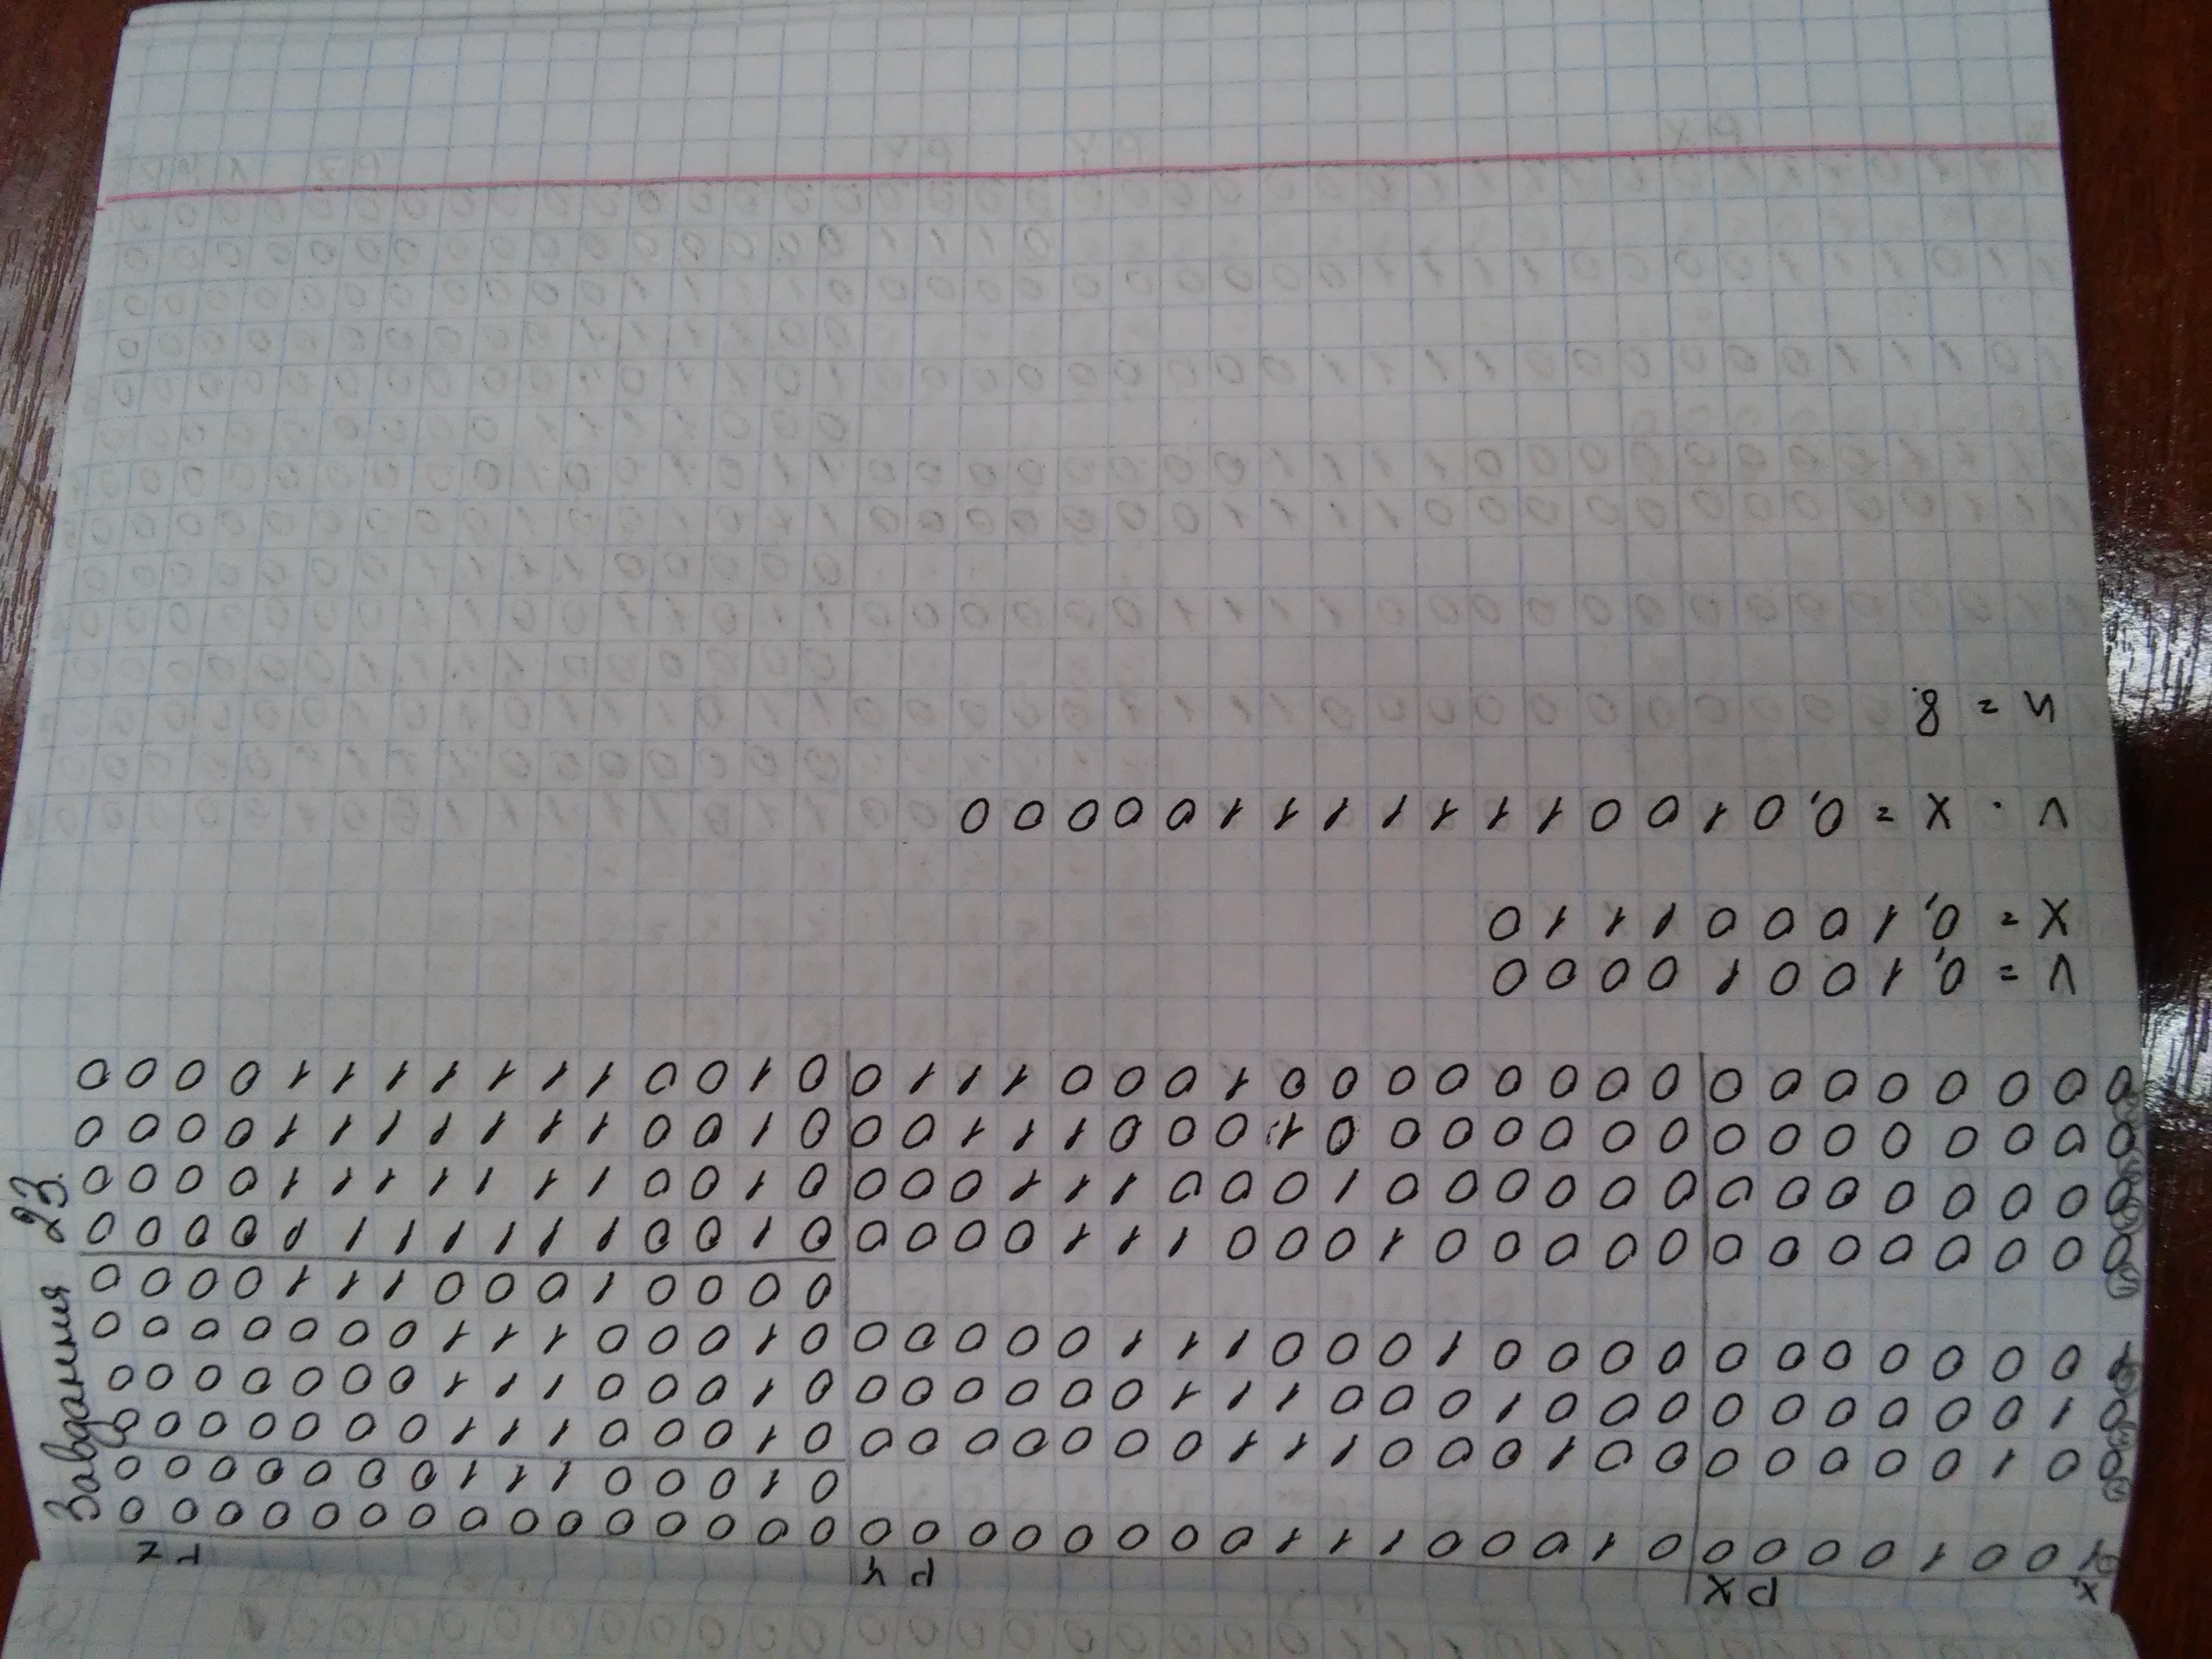 X₁ РХ РY РZ
1 0 0 1 0 0 0 0 0 1 0 0 0 1 1 1 0 0 0 0 0 0 0 0 0 0 0 0 0 0 0 0 0 0 0 0 0 0 0
0 1 0 0 0 1 1 1 0 0 0 0 0 0 0
0 0 1 0 0 0 0 0 0 0 1 0 0 0 1 1 1 0 0 0 0 0 0 0 0 1 0 0 0 1 1 1 0 0 0 0 0 0 0
0 1 0 0 0 0 0 0 0 0 0 1 0 0 0 1 1 1 0 0 0 0 0 0 0 1 0 0 0 1 1 1 0 0 0 0 0 0 0
1 0 0 0 0 0 0 0 0 0 0 0 1 0 0 0 1 1 1 0 0 0 0 0 0 1 0 0 0 1 1 1 0 0 0 0 0 0 0
0 0 0 0 1 0 0 0 1 1 1 0 0 0 0
0 0 0 0 0 0 0 0 0 0 0 0 0 1 0 0 0 1 1 1 0 0 0 0 0 1 0 0 1 1 1 1 1 1 1 0 0 0 0
0 0 0 0 0 0 0 0 0 0 0 0 0 0 1 0 0 0 1 1 1 0 0 0 0 1 0 0 1 1 1 1 1 1 1 0 0 0 0
0 0 0 0 0 0 0 0 0 0 0 0 0 0 0 1 0 0 0 1 1 1 0 0 0 1 0 0 1 1 1 1 1 1 1 0 0 0 0
0 0 0 0 0 0 0 0 0 0 0 0 0 0 0 0 1 0 0 0 1 1 1 0 0 1 0 0 1 1 1 1 1 1 1 0 0 0 0
Завдання 2.3.
V = 0, 1 0 0 1 0 0 0 0
X = 0, 1 0 0 0 1 1 1 0
V . X = 0, 0 1 0 0 1 1 1 1 1 1 1 0 0 0 0 0
n = 8.